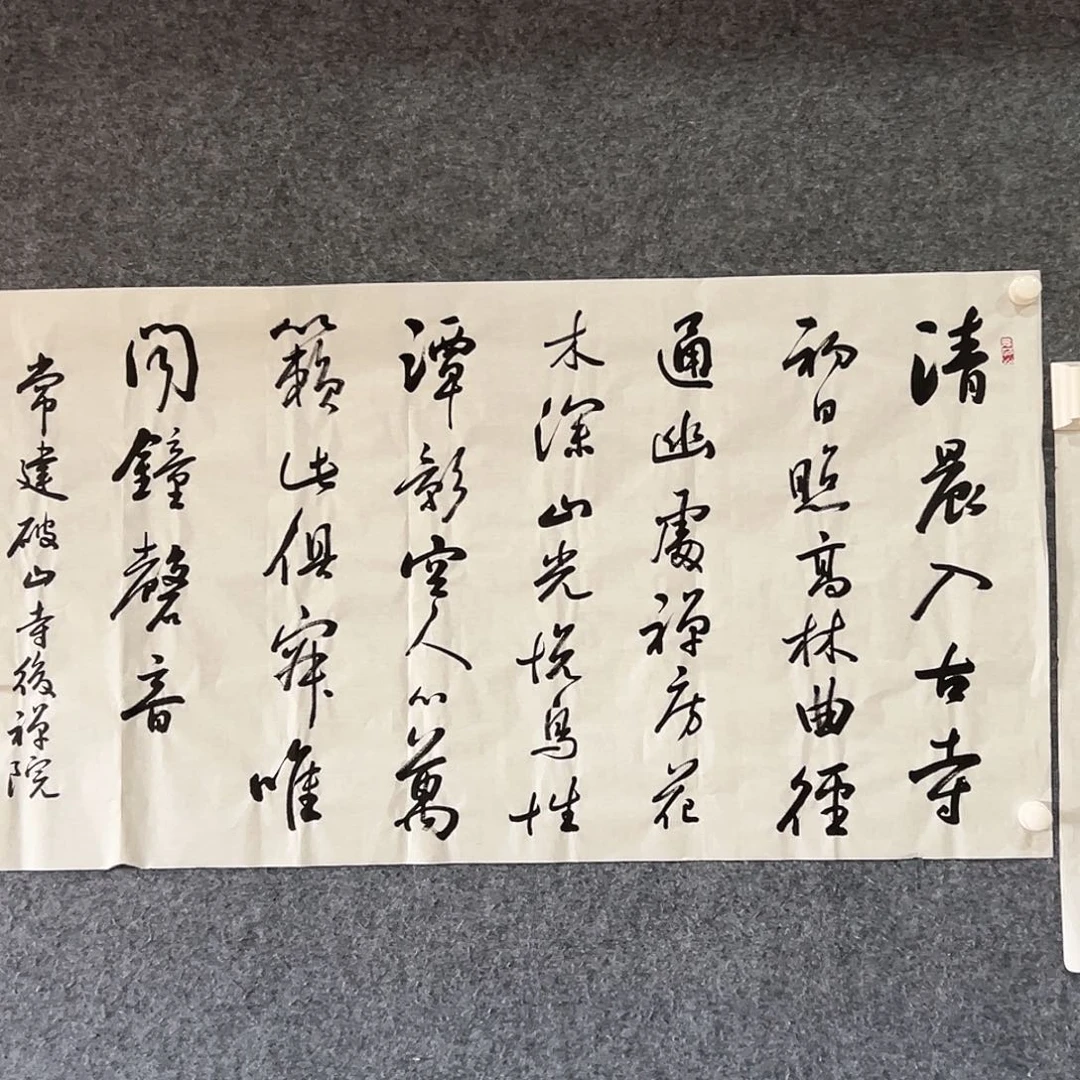 清晨入古寺
初日照高林曲徑
通幽處禅房花
木深山光悅鳥性
潭影空人心萬
籟此俱寂唯
聞鐘磬音
常建破山寺後禅院